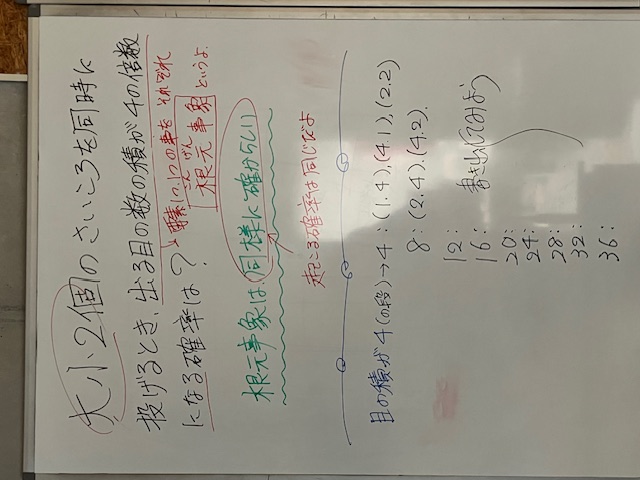 大小2個のさいころを同時に
投げるとき、出る目の数の積が4の倍数
になる確率は？
1つ1つの事をそれぞれ
こんげん
根元事象というよ。
根元事象は、同様に確からしい
起こる確率は同じだよ
目の積が4(の段)→4:(1.4),(4.1),(2.2)
8:(2.4),(4.2).
12:
16: 書き出してみよう
20:
24:
28:
32:
36: